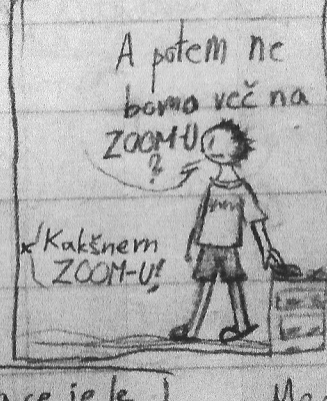 A potem ne
bomo več na
ZOOM-U
?
Kakšnem
ZOOM-U!